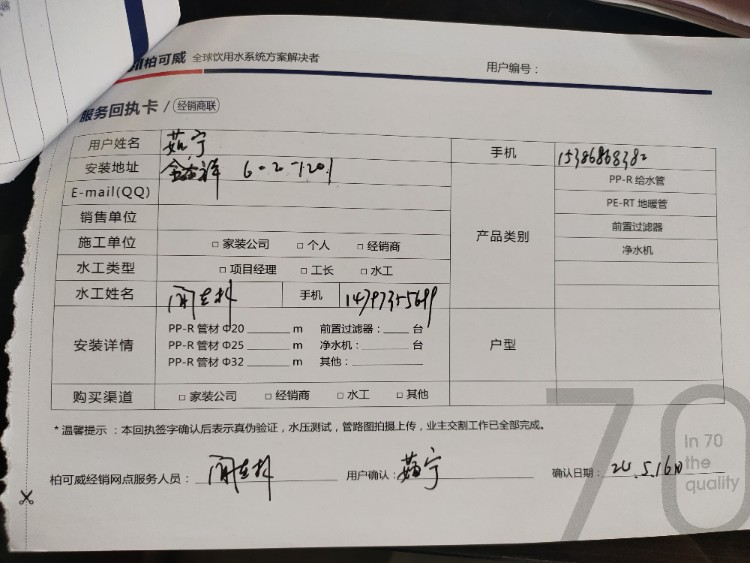 柏可威 全球饮用水系统方案解决者
用户编号：
服务回执卡 / 经销商联
用户姓名 茹宁 手机 15386868382
安装地址 6-2-1201 PP-R 给水管
E-mail(QQ) PE-RT 地暖管
销售单位 产品类别 前置过滤器
施工单位 □ 家装公司 □ 个人 □ 经销商 净水机
水工类型 □ 项目经理 □ 工长 □ 水工
水工姓名 手机
安装详情 PP-R 管材 Φ20 m 前置过滤器： 台 户型
PP-R 管材 Φ25 m 净水机： 台
PP-R 管材 Φ32 m 其他：
购买渠道 □ 家装公司 □ 经销商 □ 水工 □ 其他
* 温馨提示：本回执签字确认后表示真伪验证，水压测试，管路图拍摄上传，业主交割工作已全部完成。
70
In 70
the
quality
柏可威经销网点服务人员： 用户确认： 茹宁 确认日期：